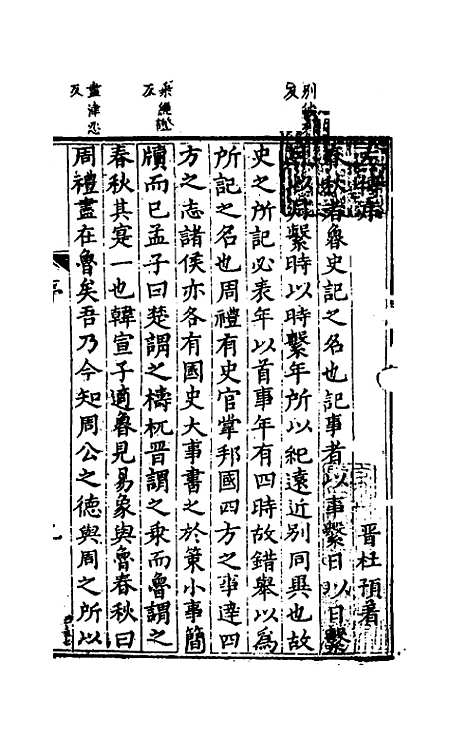 左傳序
晋杜預著
春秋者魯史記之名也記事者以事繫日以日繫
月以月繫時以時繫年所以紀遠近別同異也故
史之所記必表年以首事年有四時故錯舉以爲
所記之名也周禮有史官掌邦國四方之事達四
方之志諸侯亦各有國史大事書之於策小事簡
牘而已孟子曰楚謂之檮杌晋謂之乘而魯謂之
春秋其寔一也韓宣子適魯見易象與魯春秋曰
周禮盡在魯矣吾乃今知周公之德與周之所以
乘繩證反
盡津忍反
序